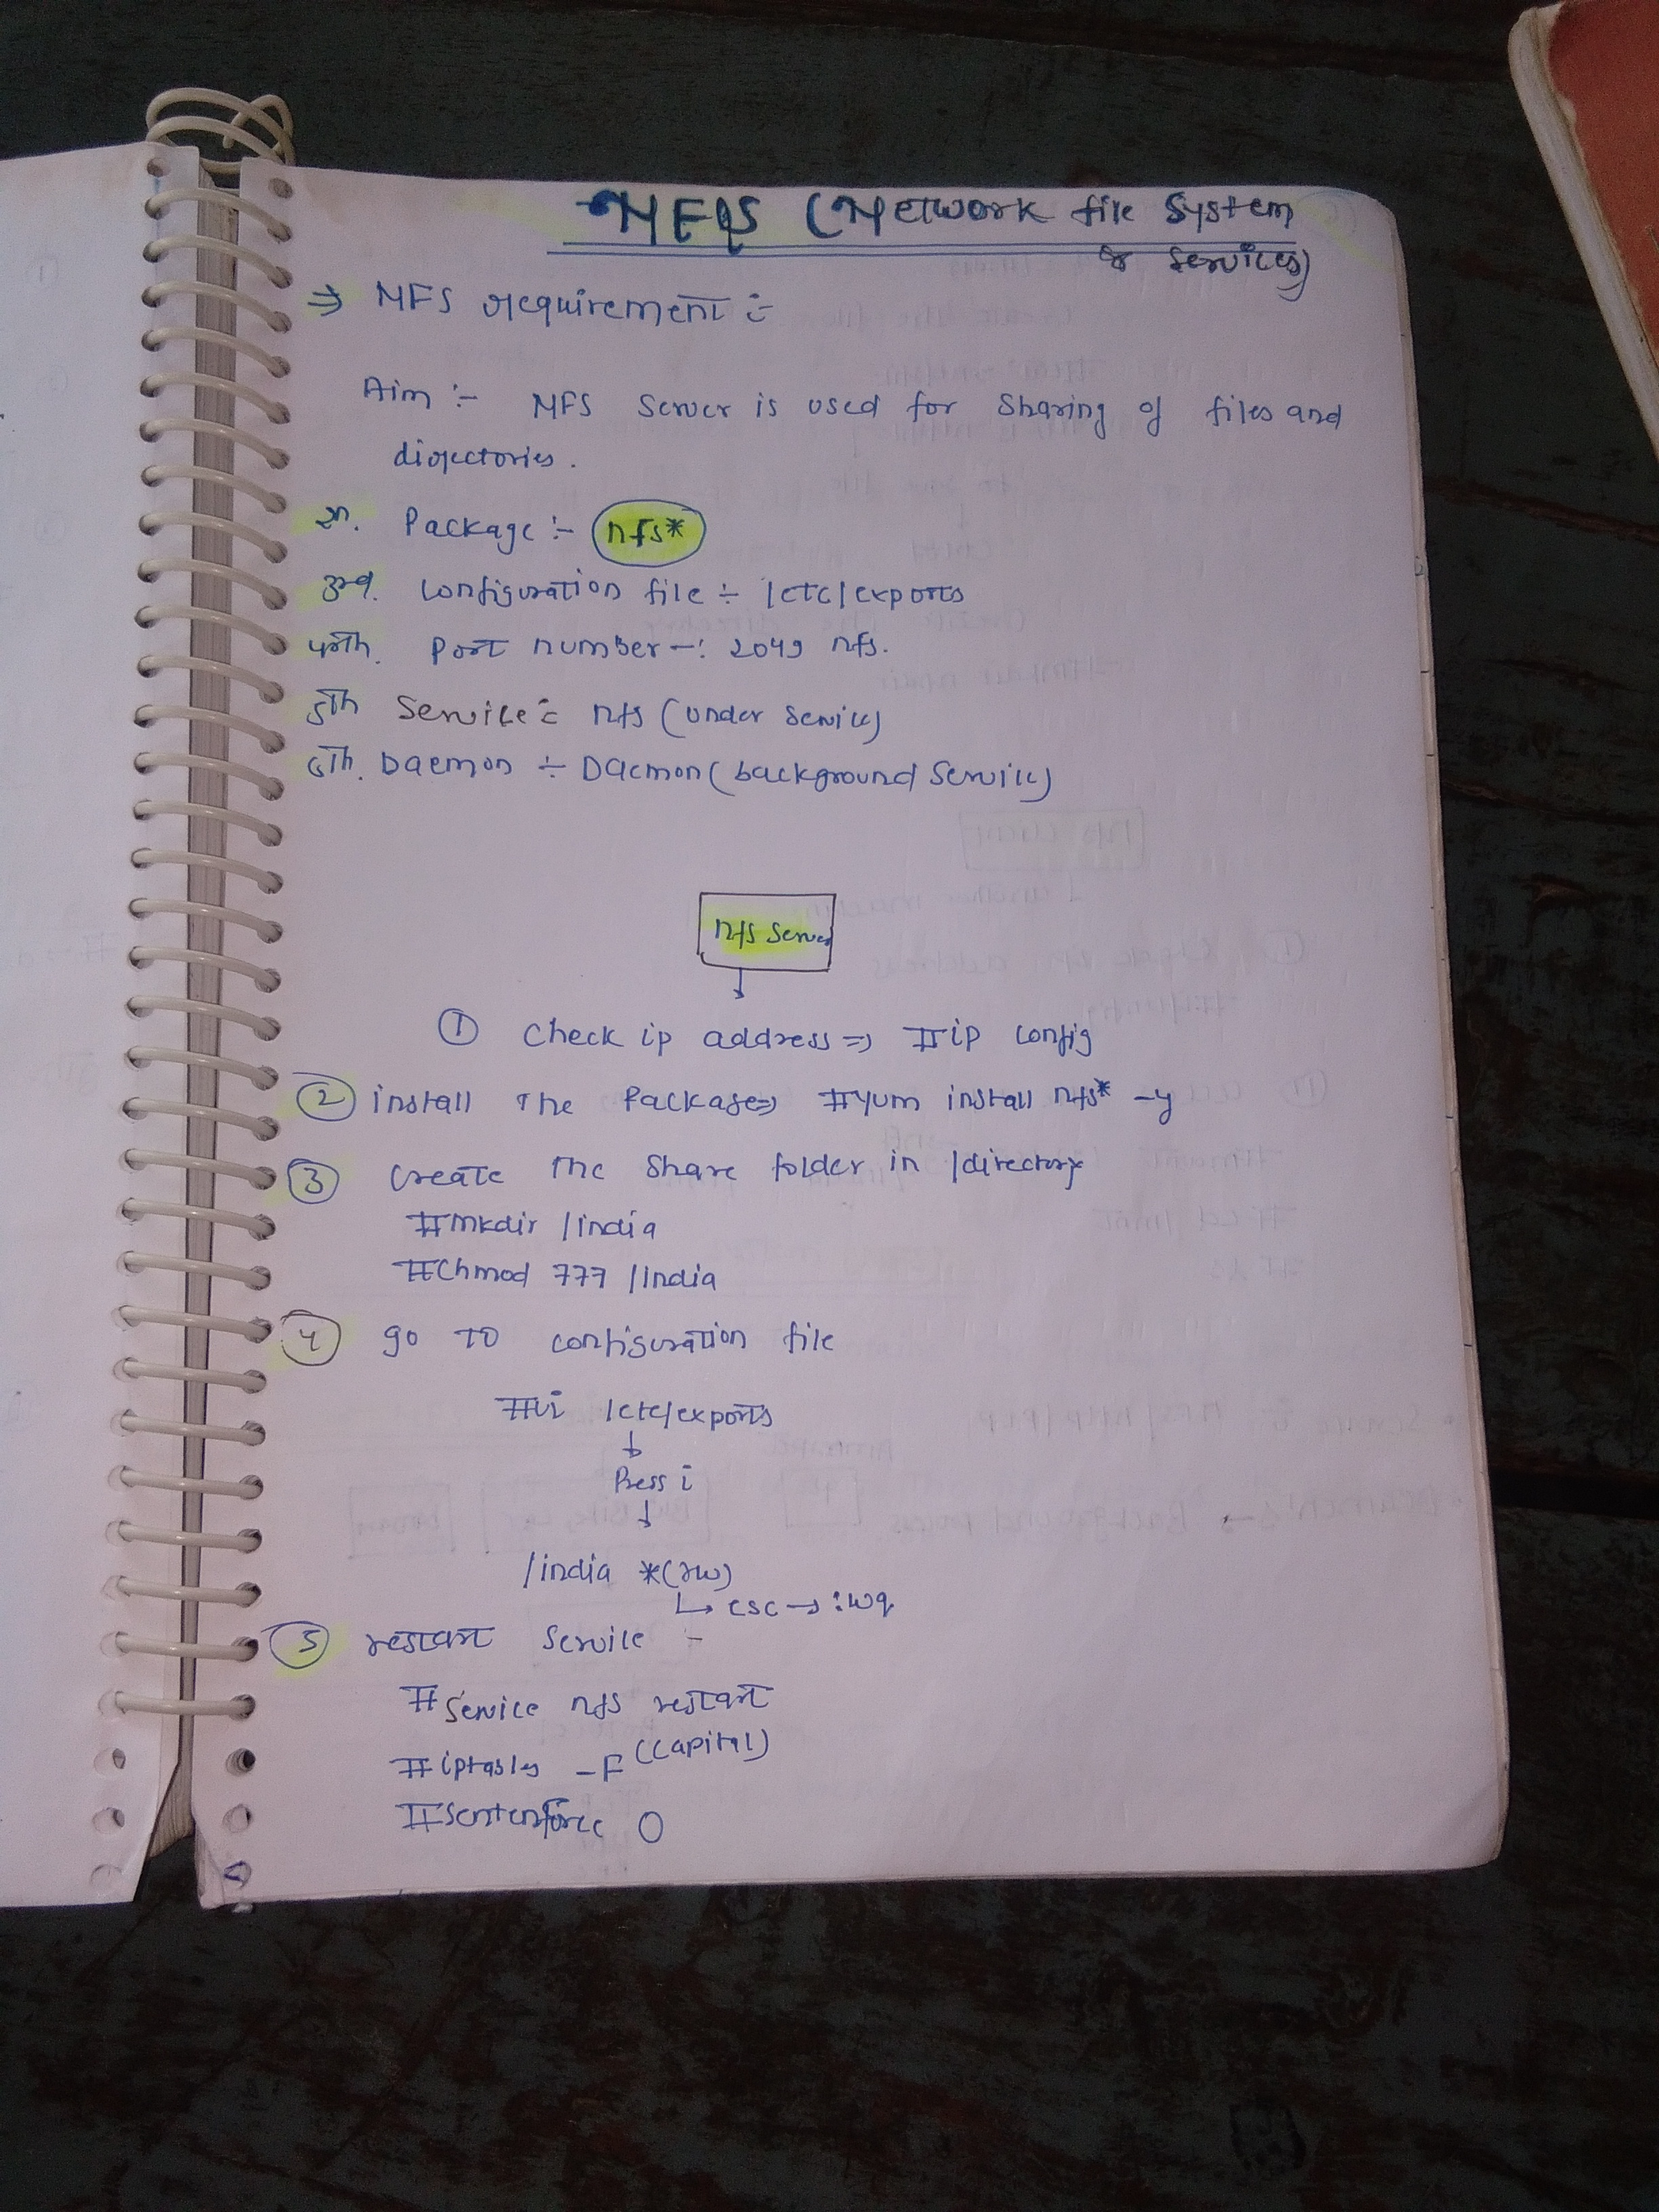 NFS (Network file System
& Services)
⇒ NFS requirement :-
Aim :- NFS Server is used for Sharing of files and
directories.
2n. Package :- nfs*
3rd. Configuration file :- /etc/exports
4rth. Port number -: 2049 nfs.
5th Service :- nfs (under service)
6th. Daemon :- Daemon (background Service)
nfs Server
① Check ip address ⇒ #ip config
② install the Package ⇒ #yum install nfs* -y
③ Create the Share folder in /directory
#mkdir /india
#Chmod 777 /india
④ go to configuration file
#vi /etc/exports
↓
Press i
↓
/india *(rw)
↳ esc → :wq
⑤ restart Service :-
#Service nfs restart
#iptables -F (Capital)
#setenforce 0